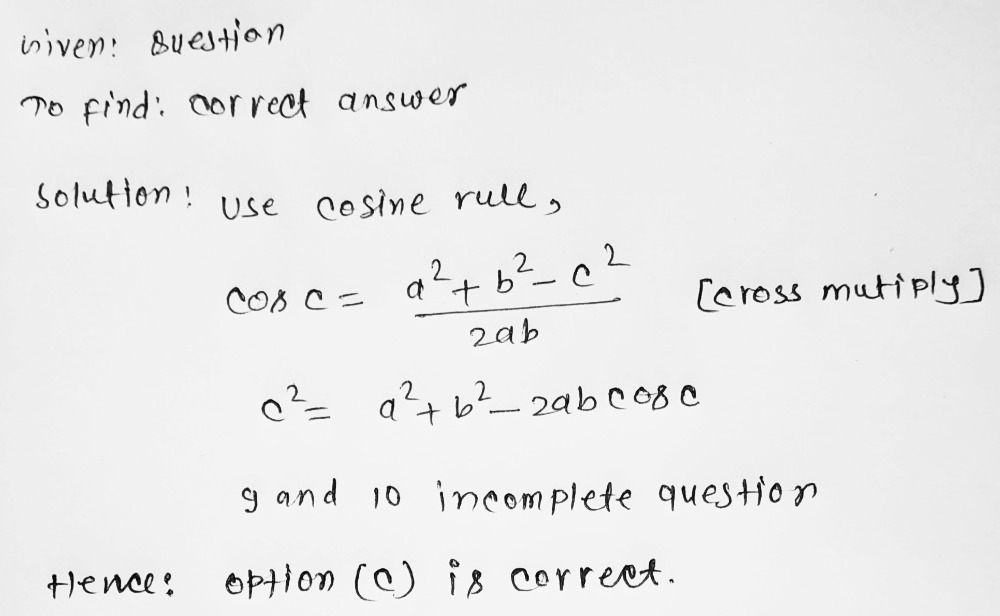 Given: Question
To find: correct answer
Solution: Use cosine rule,
cos c = a²+b²-c² / 2ab [cross mutiply]
c² = a²+b²-2ab cos c
9 and 10 incomplete question
Hence: option (c) is correct.